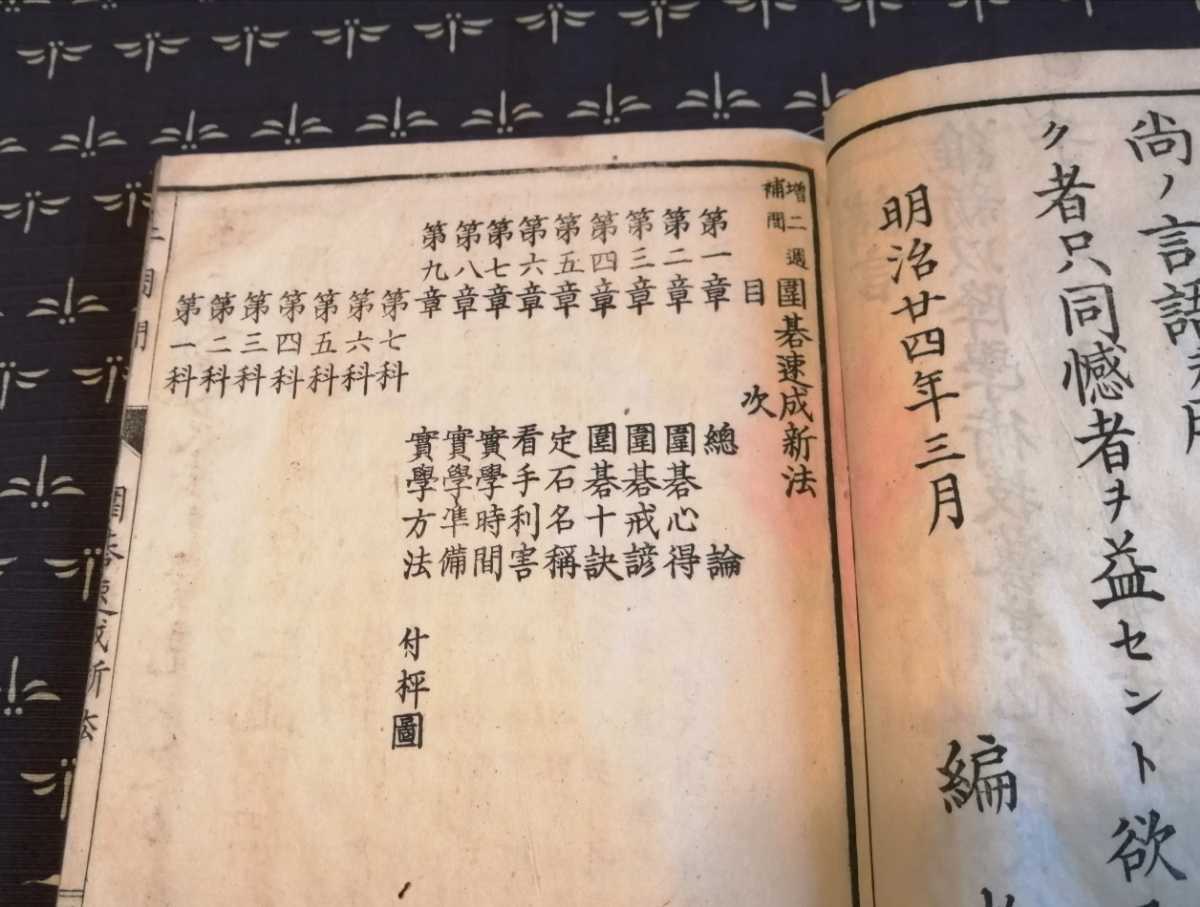 尚ノ言語
ク者只同憾者ヲ益セント欲
明治廿四年三月
編
増補二週間圍碁速成新法
目次
第一章 總論
第二章 圍碁心得
第三章 圍碁戒諺
第四章 圍碁十訣
第五章 定石名稱
第六章 看手利害
第七章 實學時間
第八章 實學準備
第九章 實學方法 付枰圖
第七科
第六科
第五科
第四科
第三科
第二科
第一科
二週間 圍碁速成新法